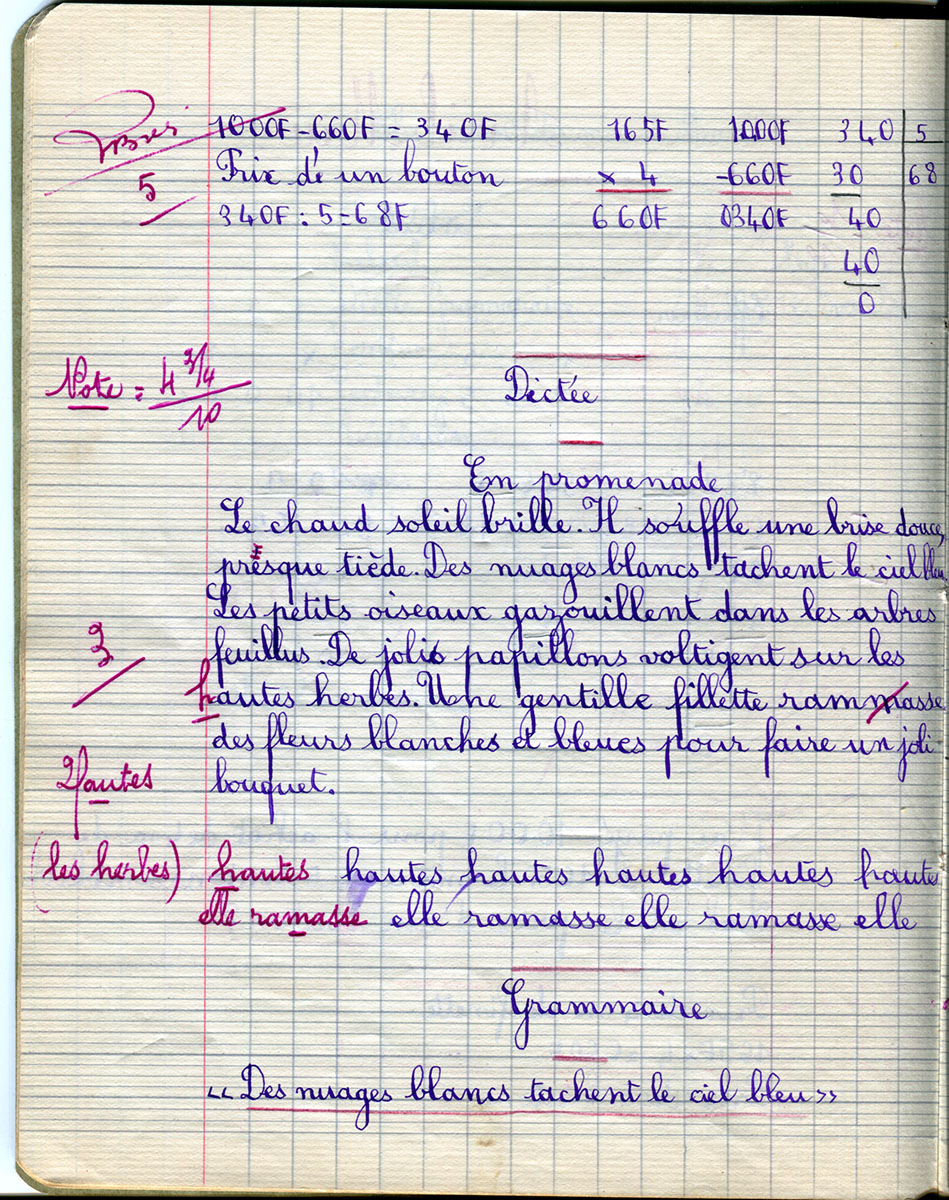 1000F - 660F = 340F 165F 1000F 340 5
Prix d'un bouton × 4 -660F 30 68
5
340F : 5 = 68F 660F 0340F 40
40
0
Note = 4 3/4
10
Dictée
En promenade
Le chaud soleil brille. Il souffle une brise douce,
presque tiède. Des nuages blancs tachent le ciel bleu.
Les petits oiseaux gazouillent dans les arbres
3
feuillus. De jolis papillons voltigent sur les
hautes herbes. Une gentille fillette rammasse
des fleurs blanches et bleues pour faire un joli
2 fautes
bouquet.
(les herbes) hautes hautes hautes hautes hautes hautes
elle ramasse elle ramasse elle ramasse elle
Grammaire
« Des nuages blancs tachent le ciel bleu »